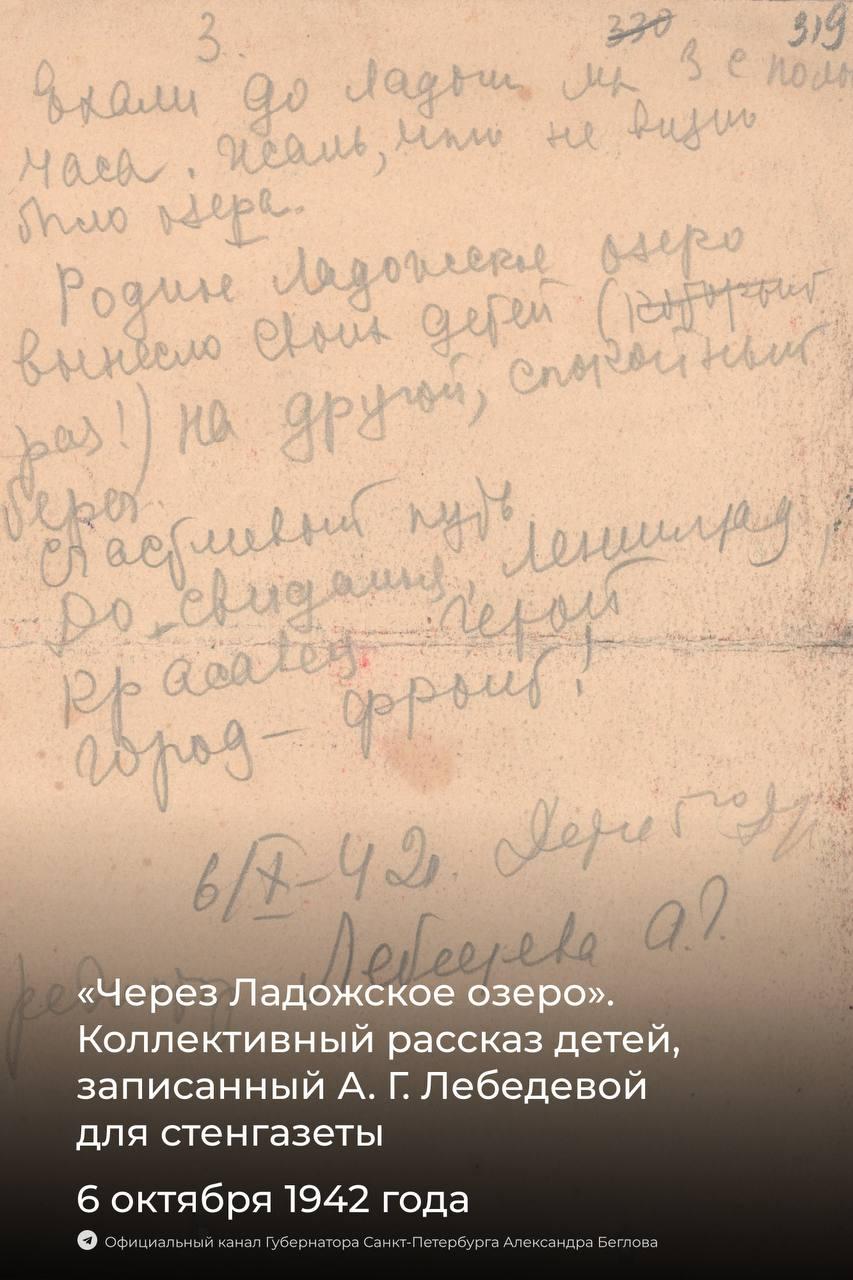 3. 330 319
Ехали до Ладоги мы 3 с полов
часа. Жаль, что не видно
было озера.
Родное Ладожское озеро
вынесло своих детей (который
раз!) на другой, спокойный
берег.
Счастливый путь
До-свидания, Ленинград,
Красавец герой
город – фронт!
6/X–42г.
Лебедева А.Г.
«Через Ладожское озеро».
Коллективный рассказ детей,
записанный А. Г. Лебедевой
для стенгазеты
6 октября 1942 года
Официальный канал Губернатора Санкт-Петербурга Александра Беглова